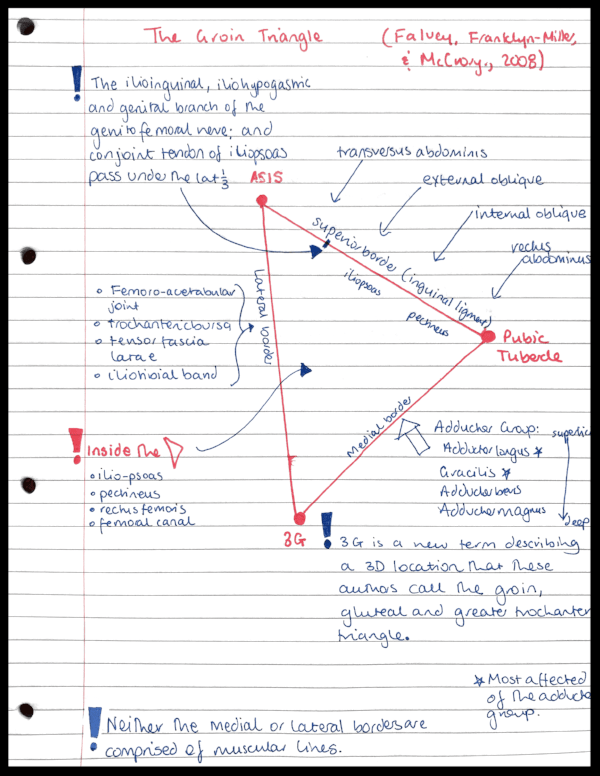 The Groin Triangle
(Falvey, Franklyn-Miller,
& McCrory., 2008)
! The ilioinguinal, iliohypogastric
and genital branch of the
genitofemoral nerve; and
conjoint tendon of iliopsoas
pass under the lat 1/3
ASIS
transversus abdominis
external oblique
internal oblique
rectus
abdominus
superior border (inguinal ligament)
iliopsoas
pectineus
Pubic
Tubercle
Lateral border
• Femoro-acetabular
joint
• trochanteric bursa
• tensor fascia
latae
• iliotibial band
Medial border
Adductor Group:
Adductor longus *
Gracilis *
Adductor brevis
Adductor magnus
superficial
deep
! Inside the
• ilio-psoas
• pectineus
• rectus femoris
• femoral canal
3G
! 3G is a new term describing
a 3D location that these
authors call the groin,
gluteal and greater trochanter
triangle.
* Most affected
of the adductor
group.
! Neither the medial or lateral borders are
comprised of muscular lines.